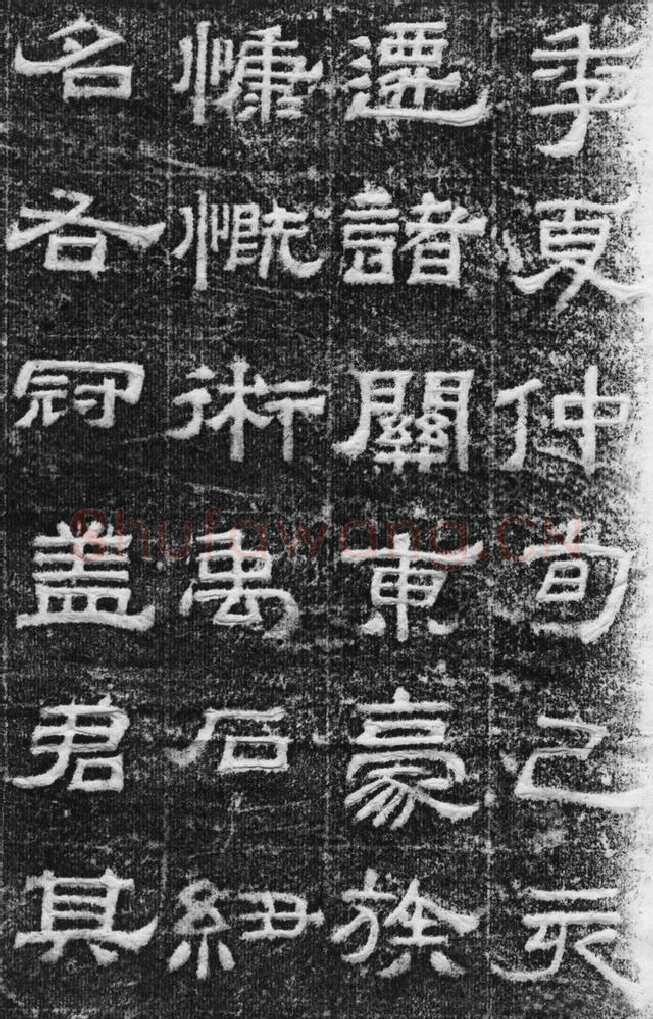 季夏仲旬己亥
遷諸關東豪族
慷慨術禹石紐
名各冠盖君其
Shufawang.CN